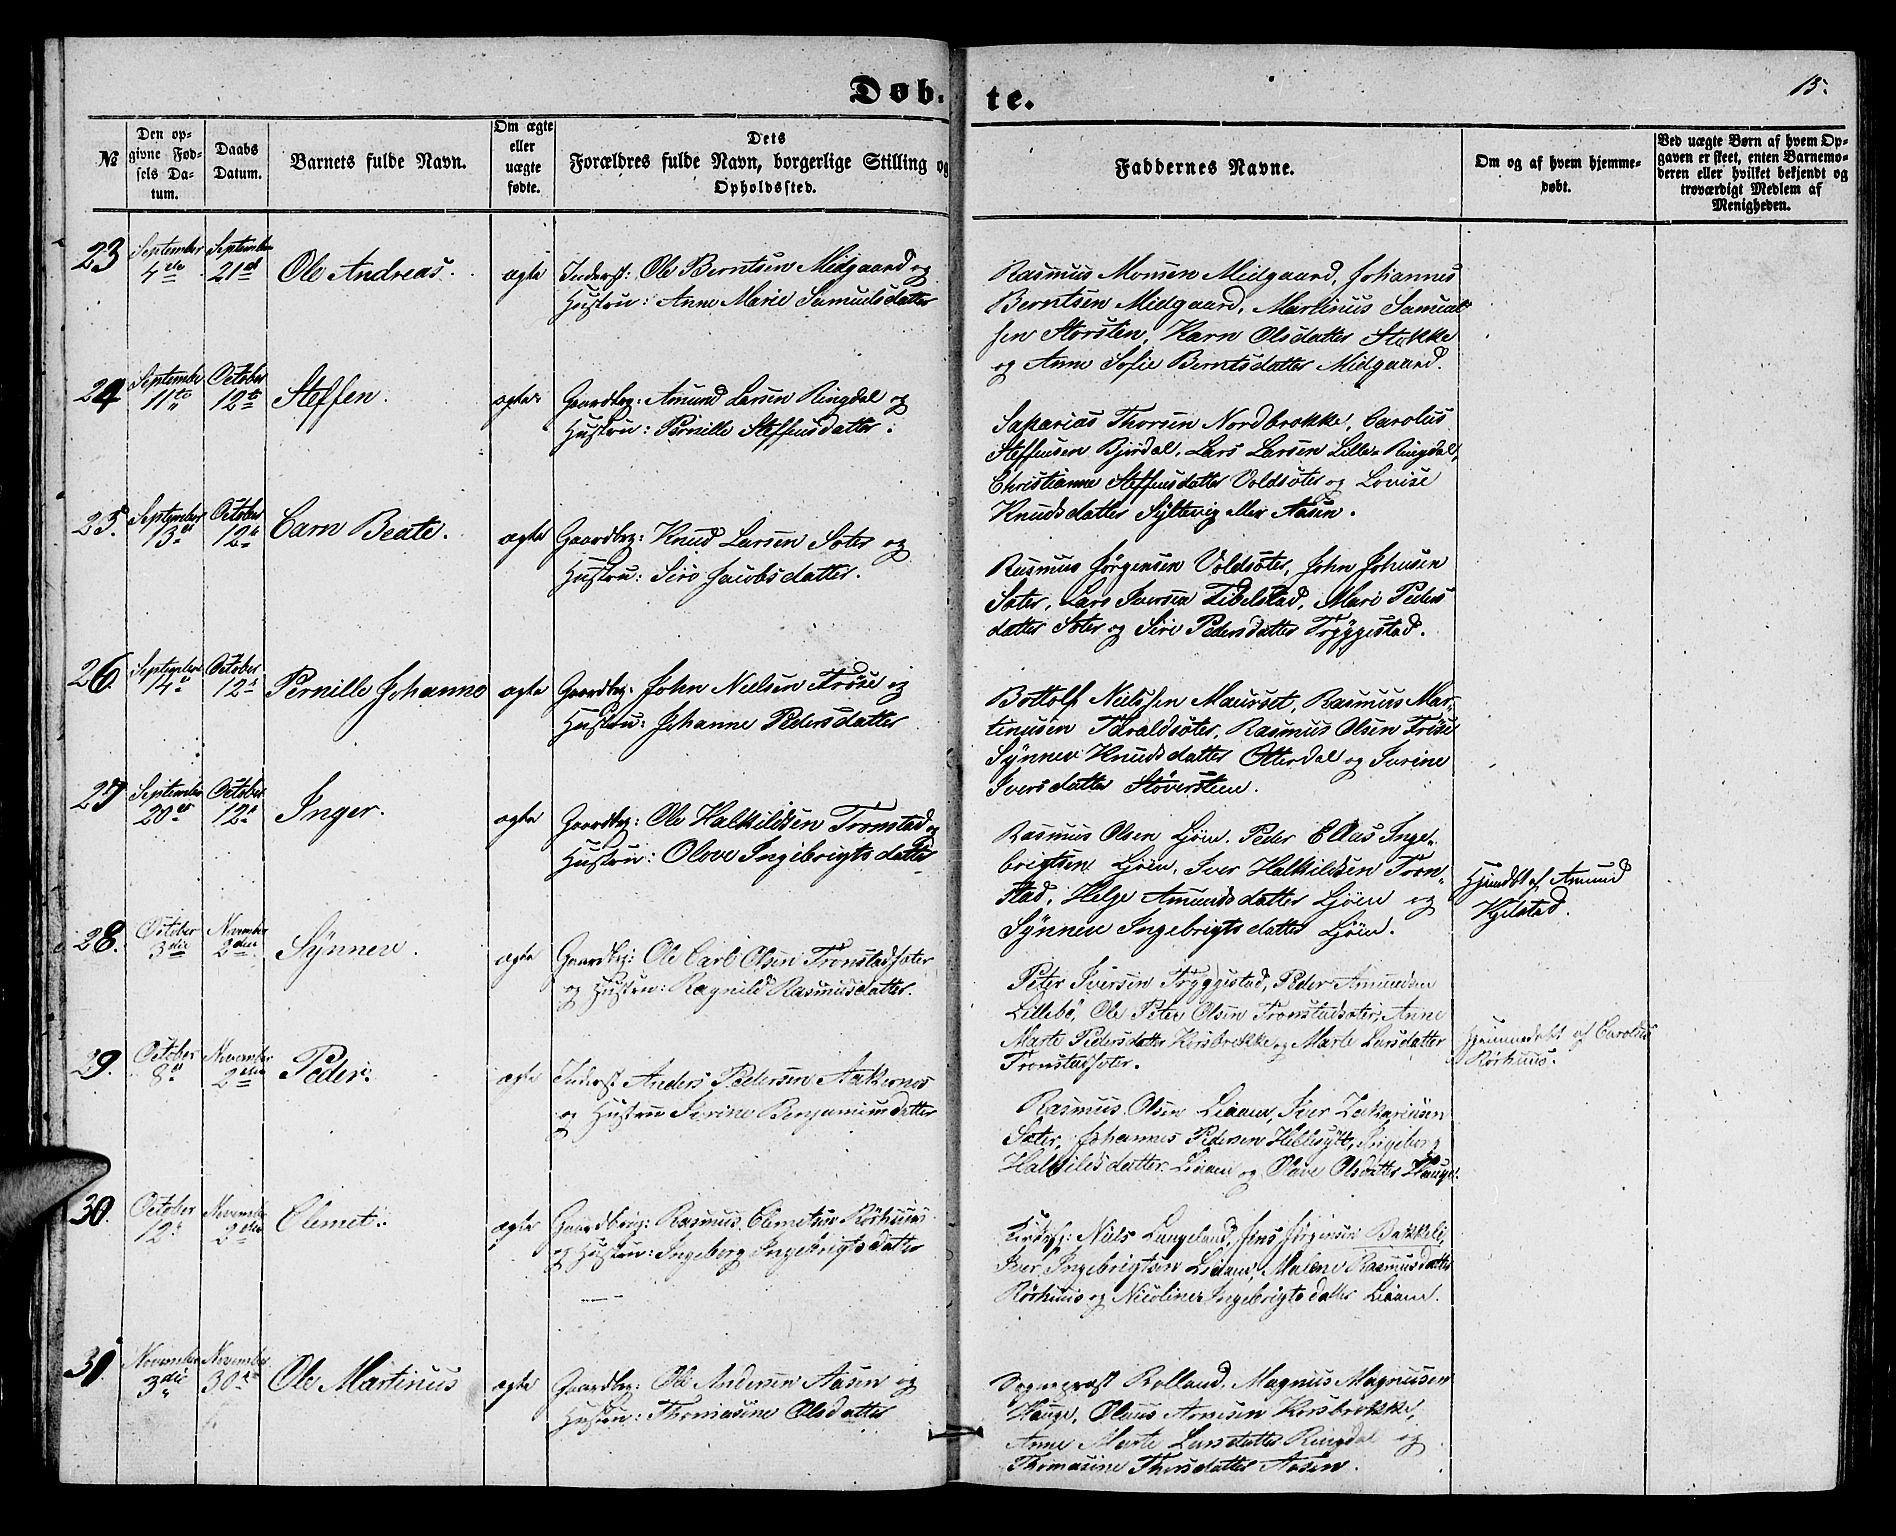 Døb-
te.
15.
№
Den op-
givne Fød-
sels Da-
tum.
Daabs
Datum.
Barnets fulde Navn.
Om ægte
eller
uægte
fødte.
Dets
Forældres fulde Navn, borgerlige Stilling og
Opholdssted.
Faddernes Navne.
Om og af hvem hjemme-
døbt.
Ved uægte Børn af hvem Op-
gaven er skeet, enten Barnemo-
deren eller hvilket bekjendt og
troværdigt Medlem af
Menigheden.
23
September
4de
September
21de
Ole Andreas.
ægte
Inderst: Ole Berntsen Midgaard og
Hustru: Anne Marie Samuelsdatter
Rasmus Monsen Midgaard, Johannes
Berntsen Midgaard, Martinus Samuel
sen Storsten, Karn Olsdatter Stokke
og Anne Sofie Berntsdatter Midgaard.
24
September
11te
October
12te
Steffen.
ægte
Gaardbrg: Amund Larsen Ringdal og
Hustru: Pernille Steffensdatter.
Sakarias Thorsen Nordbrekke, Carolus
Steffensen Bjørdal, Lars Larsen Lille-Ringdal,
Christianne Steffensdatter Voldsæter og Lovise
Knudsdatter Syltevig eller Aasen.
25.
September
13de
October
12te
Carn Beate.
ægte
Gaardbrg: Knud Larsen Sæter og
Hustru: Siro Jacobsdatter.
Rasmus Jørgensen Voldsæter, John Johnsen
Sæter, Lars Iversen Fibelstad, Mari Peders
datter Sæter og Siri Pedersdatter Tryggestad.
26.
September
14de
October
12te
Pernille Johanne
ægte
Gaardbrg: John Nielsen Frøse og
Hustru: Johanne Pedersdatter
Bottolf Nielssen Maurset, Rasmus Mar-
tinusen Taraldsæter, Rasmus Olsen Frøse
Synnev Knudsdatter Otterdal og Ivrine
Iversdatter Støversteen.
27
September
20de
October
12te
Inger.
ægte
Gaardbrg: Ole Halkildsen Tronstad og
Hustru: Olove Ingebrigtsdatter
Rasmus Olsen Ljøen, Peder Elias Inge-
brigtsen Ljøen, Iver Halkildsen Tron-
stad, Helge Amundsdatter Ljøen og
Synnev Ingebrigtsdatter Ljøen.
Hjemdøbt af Amund
Kjelstad.
28.
October
3die
November
2den
Synnev.
ægte
Gaardbrg: Ole Carl Olsen Tronstadsæter
og Hustru: Ragnild Rasmusdatter.
Peter Iversen Tryggestad, Peder Amundsen
Lillebø, Ole Peter Olsen Tronstadsæter, Anne
Marte Pedersdatter Korsbrekke og Marte Larsdatter
Tronstadsæter.
Hjemmedøbt af Carolus
Rørhuus.
29.
October
8de
November
2den
Peder.
ægte
Inderst Anders Pedersen Aakernes
og Hustru Ivrine Benjaminsdatter
Rasmus Olsen Liaen, Iver Zakariasen
Sæter, Johannes Pedersen Hellesylt, Ingeborg
Halkildsdatter Liaen og Olave Olsdatter Hauge.
30.
October
12te
November
2den
Clemet.
ægte
Gaardbrg: Rasmus Clemetsen Rørhuus
og Hustru: Ingeborg Ingebrigtsdatter
Kirkes: Niels Langeland, Jens Jørgensen Bakkeli,
Iver Ingebrigtsen Liaen, Malene Rasmusdatter
Rørhuus og Nicoline Ingebrigtsdatter Liaen.
31.
November
3die
November
30te
Ole Martinus
ægte
Gaardbrg: Ole Andersen Aasen og
Hustru: Thomasine Olsdatter
Sognepræst Rolland, Magnus Magnusen
Hauge, Olaus Arnesen Korsbrekke,
Anne Marte Larsdatter Ringdal og
Thomasine Thorsdatter Aasen.